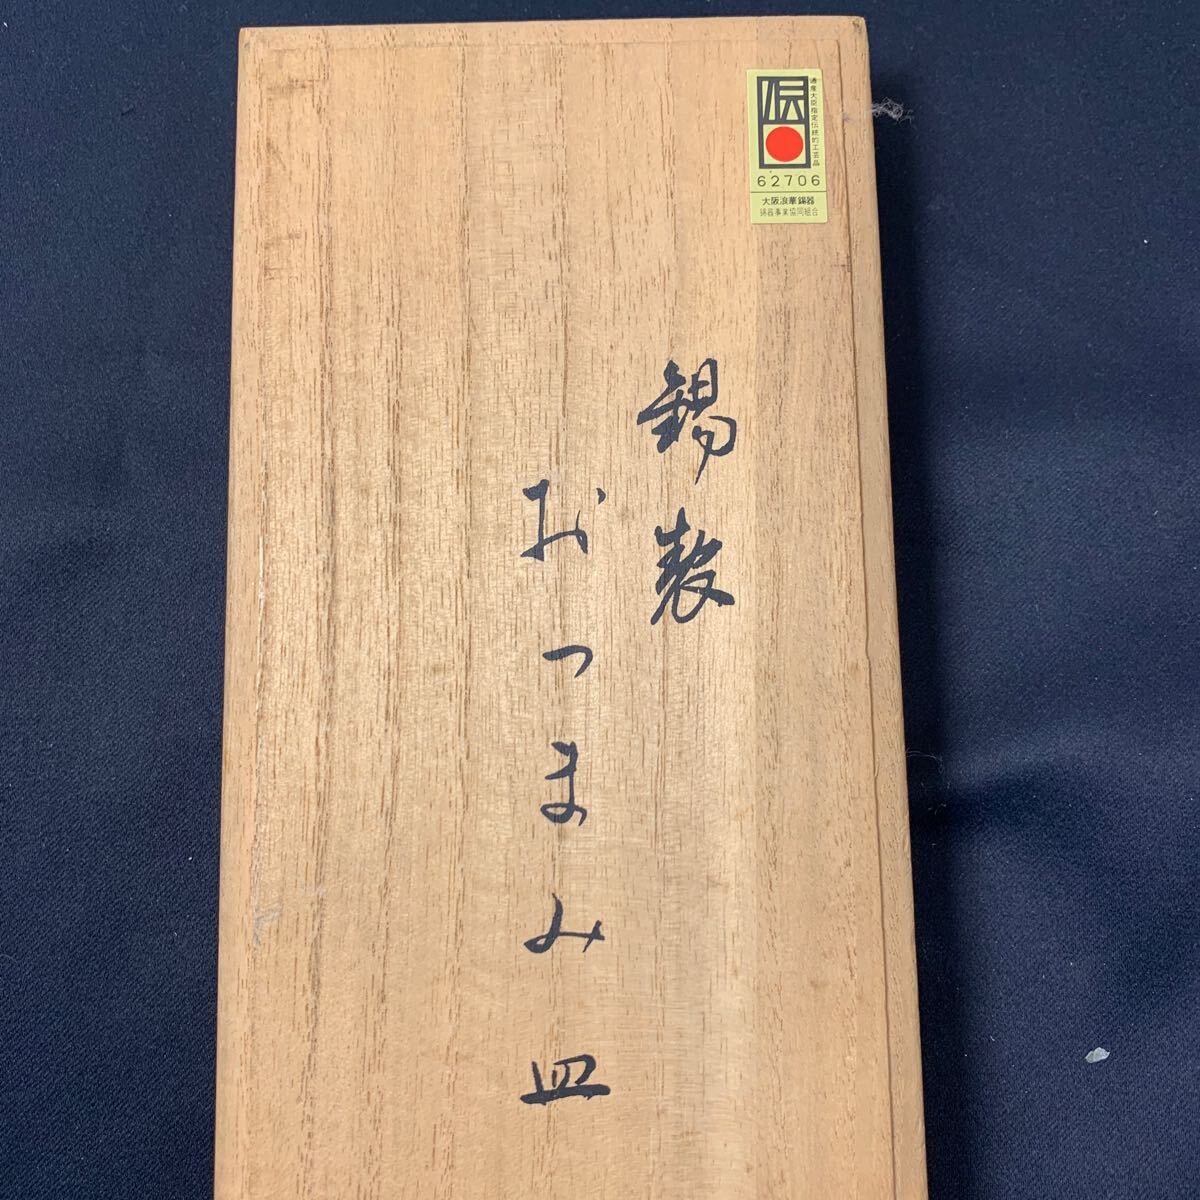 錫製
おつまみ皿
通産大臣指定伝統的工芸品
62706
大阪浪華錫器
錫器事業協同組合